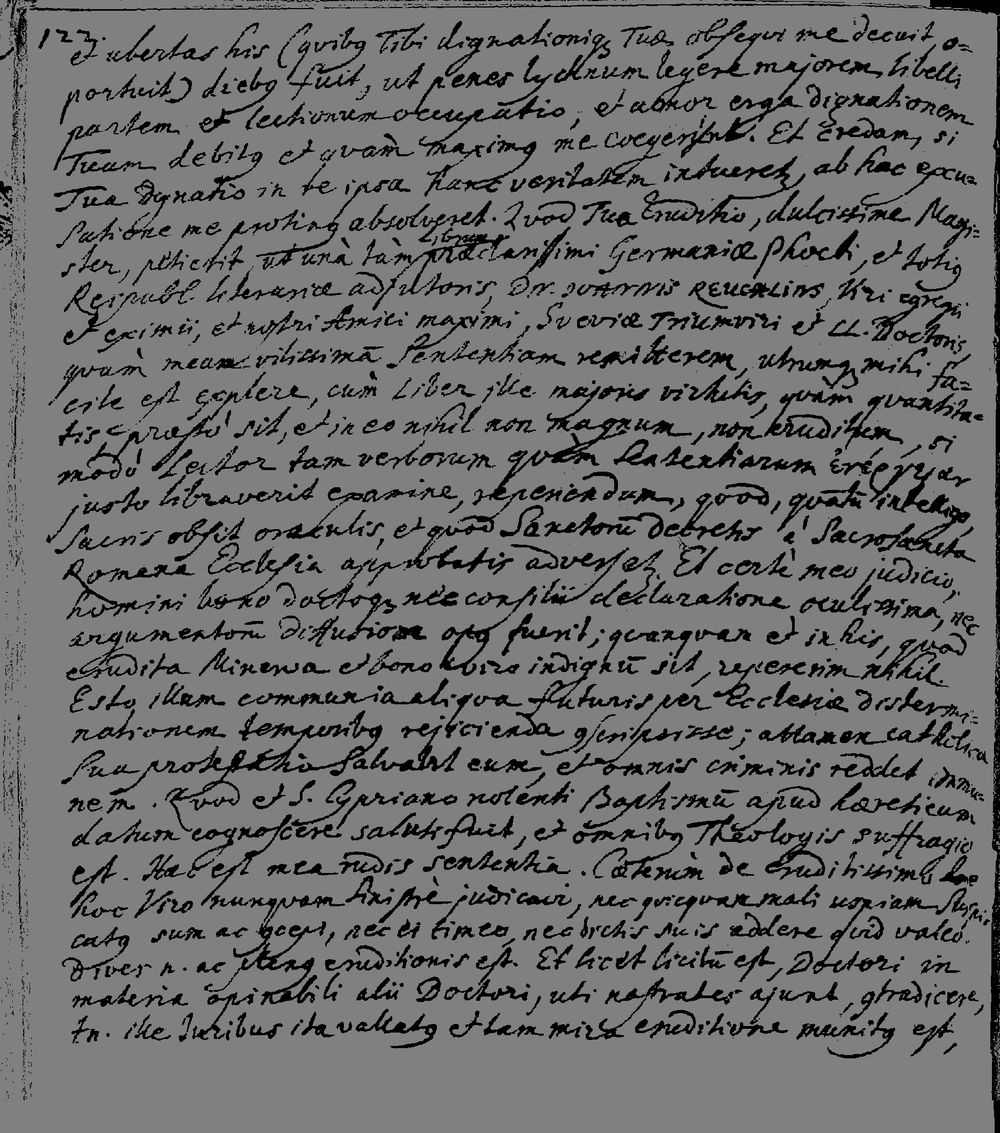 122.
et ubertas his (quibꝫ Tibi dignationiqꝫ Tuæ obsequi me decuit, o-
portuit) diebꝫ fuit, ut penes lychnum legere majorem libelli
partem et lectionum occupatio, et amor erga dignationem
Tuam debitꝫ et quàm maximꝫ me coegerint. Et credam, si
Tua Dignatio in te ipsa hanc veritatem intueretꝫ, ab hac excu-
satione me protinꝫ absolveret. Quod Tua Eruditio, dulcissime Magi-
ster, petierit, ut unà tàm Librum præclarissimi Germaniæ Phoebi, et totiꝫ
Reipubl. literariæ adjutoris, Dn. JOANNIS REUCHLINS, Viri egregii
et eximii, et nostri Amici maximi, Sveviæ Triumviri et LL. Doctoris,
quàm meam vilissimā Sententiam remitterem, utrumqꝫ mihi fa-
cile est explere, cùm Liber ille majoris virtutis, quàm quantita-
tis præstò sit, et in eo nihil non magnum, non eruditum, si
modò Lector tam verborum quàm Sententiarum ἐνέργειαν
justo libraverit examine, reperiendum, quod, quātū intelligo,
Sacris obsit oraculis, et quod Sanctorū Decretis à Sacrosancta
Romana Ecclesia approbatis adversetꝫ. Et certè meo judicio,
homini bono doctoqꝫ nec consilii declaratione oculissima, nec
argumentorū diffusione opꝫ fuerit; quanquam et in his, quod
erudita Minerva et bono viro indignū sit, repererim nihil.
Esto, illum communia aliqua futuris per Ecclesiæ determi-
nationem temporibꝫ rejicienda ꝯscripsisse; attamen catholica
sua protestatio salvabit eum, et omnis criminis reddet immu-
nem. Quod et S. Cypriano nolenti Baptismū apud hæreticum
datum cognoscere saluti fuit, et omnibꝫ Theologis suffragio
est. Hæc est mea rudis sententia. Cæterùm de Eruditissimo
hoc Viro nunquam sinistrè judicavi, nec quicquam mali uspiam suspi-
catꝫ sum ac ꝯcepi, nec ei timeo, nec dictis suis addere quid valeo.
Dives n. ac plenꝫ eruditionis est. Et licet licitū est, Doctori in
materia opinabili alii Doctori, uti nostrates ajunt, ꝯtradicere,
tn. ille Juribus ita vallatꝫ et tam mira eruditione munitꝫ est,